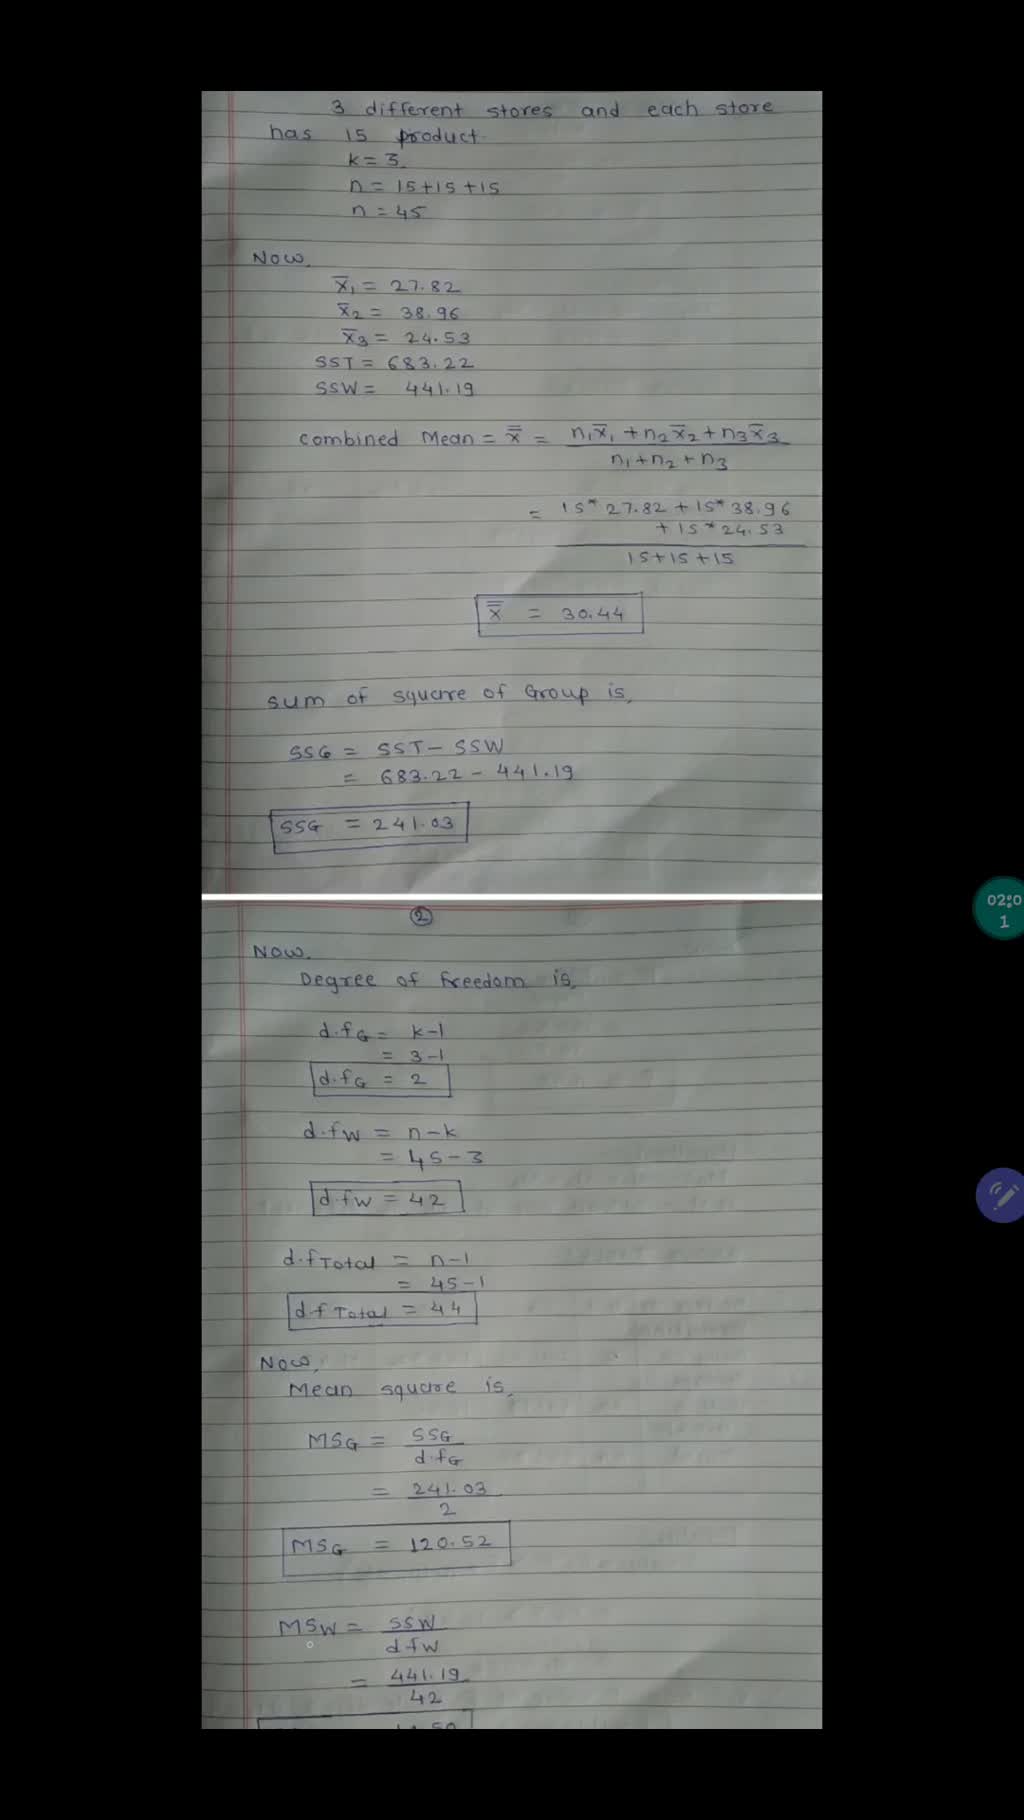 3 different stores and each store
has 15 product.
k = 3.
n = 15+15+15
n = 45
Now,
x̄₁ = 27.82
x̄₂ = 38.96
x̄₃ = 24.53
SST = 683.22
SSW = 441.19
Combined Mean = x̿ = n₁x̄₁ + n₂x̄₂ + n₃x̄₃
n₁ + n₂ + n₃
= 15*27.82 + 15*38.96
+ 15*24.53
15+15+15
x̿ = 30.44
Sum of square of Group is,
SSG = SST - SSW
= 683.22 - 441.19
SSG = 241.03
2
Now,
Degree of freedom is,
d.fG = k-1
= 3-1
d.fG = 2
d.fW = n-k
= 45-3
d.fW = 42
d.fTotal = n-1
= 45-1
d.f Total = 44
Now,
Mean square is,
MSG = SSG
d.fG
= 241.03
2
MSG = 120.52
MSW = SSW
d.fW
= 441.19
42
02:0
1